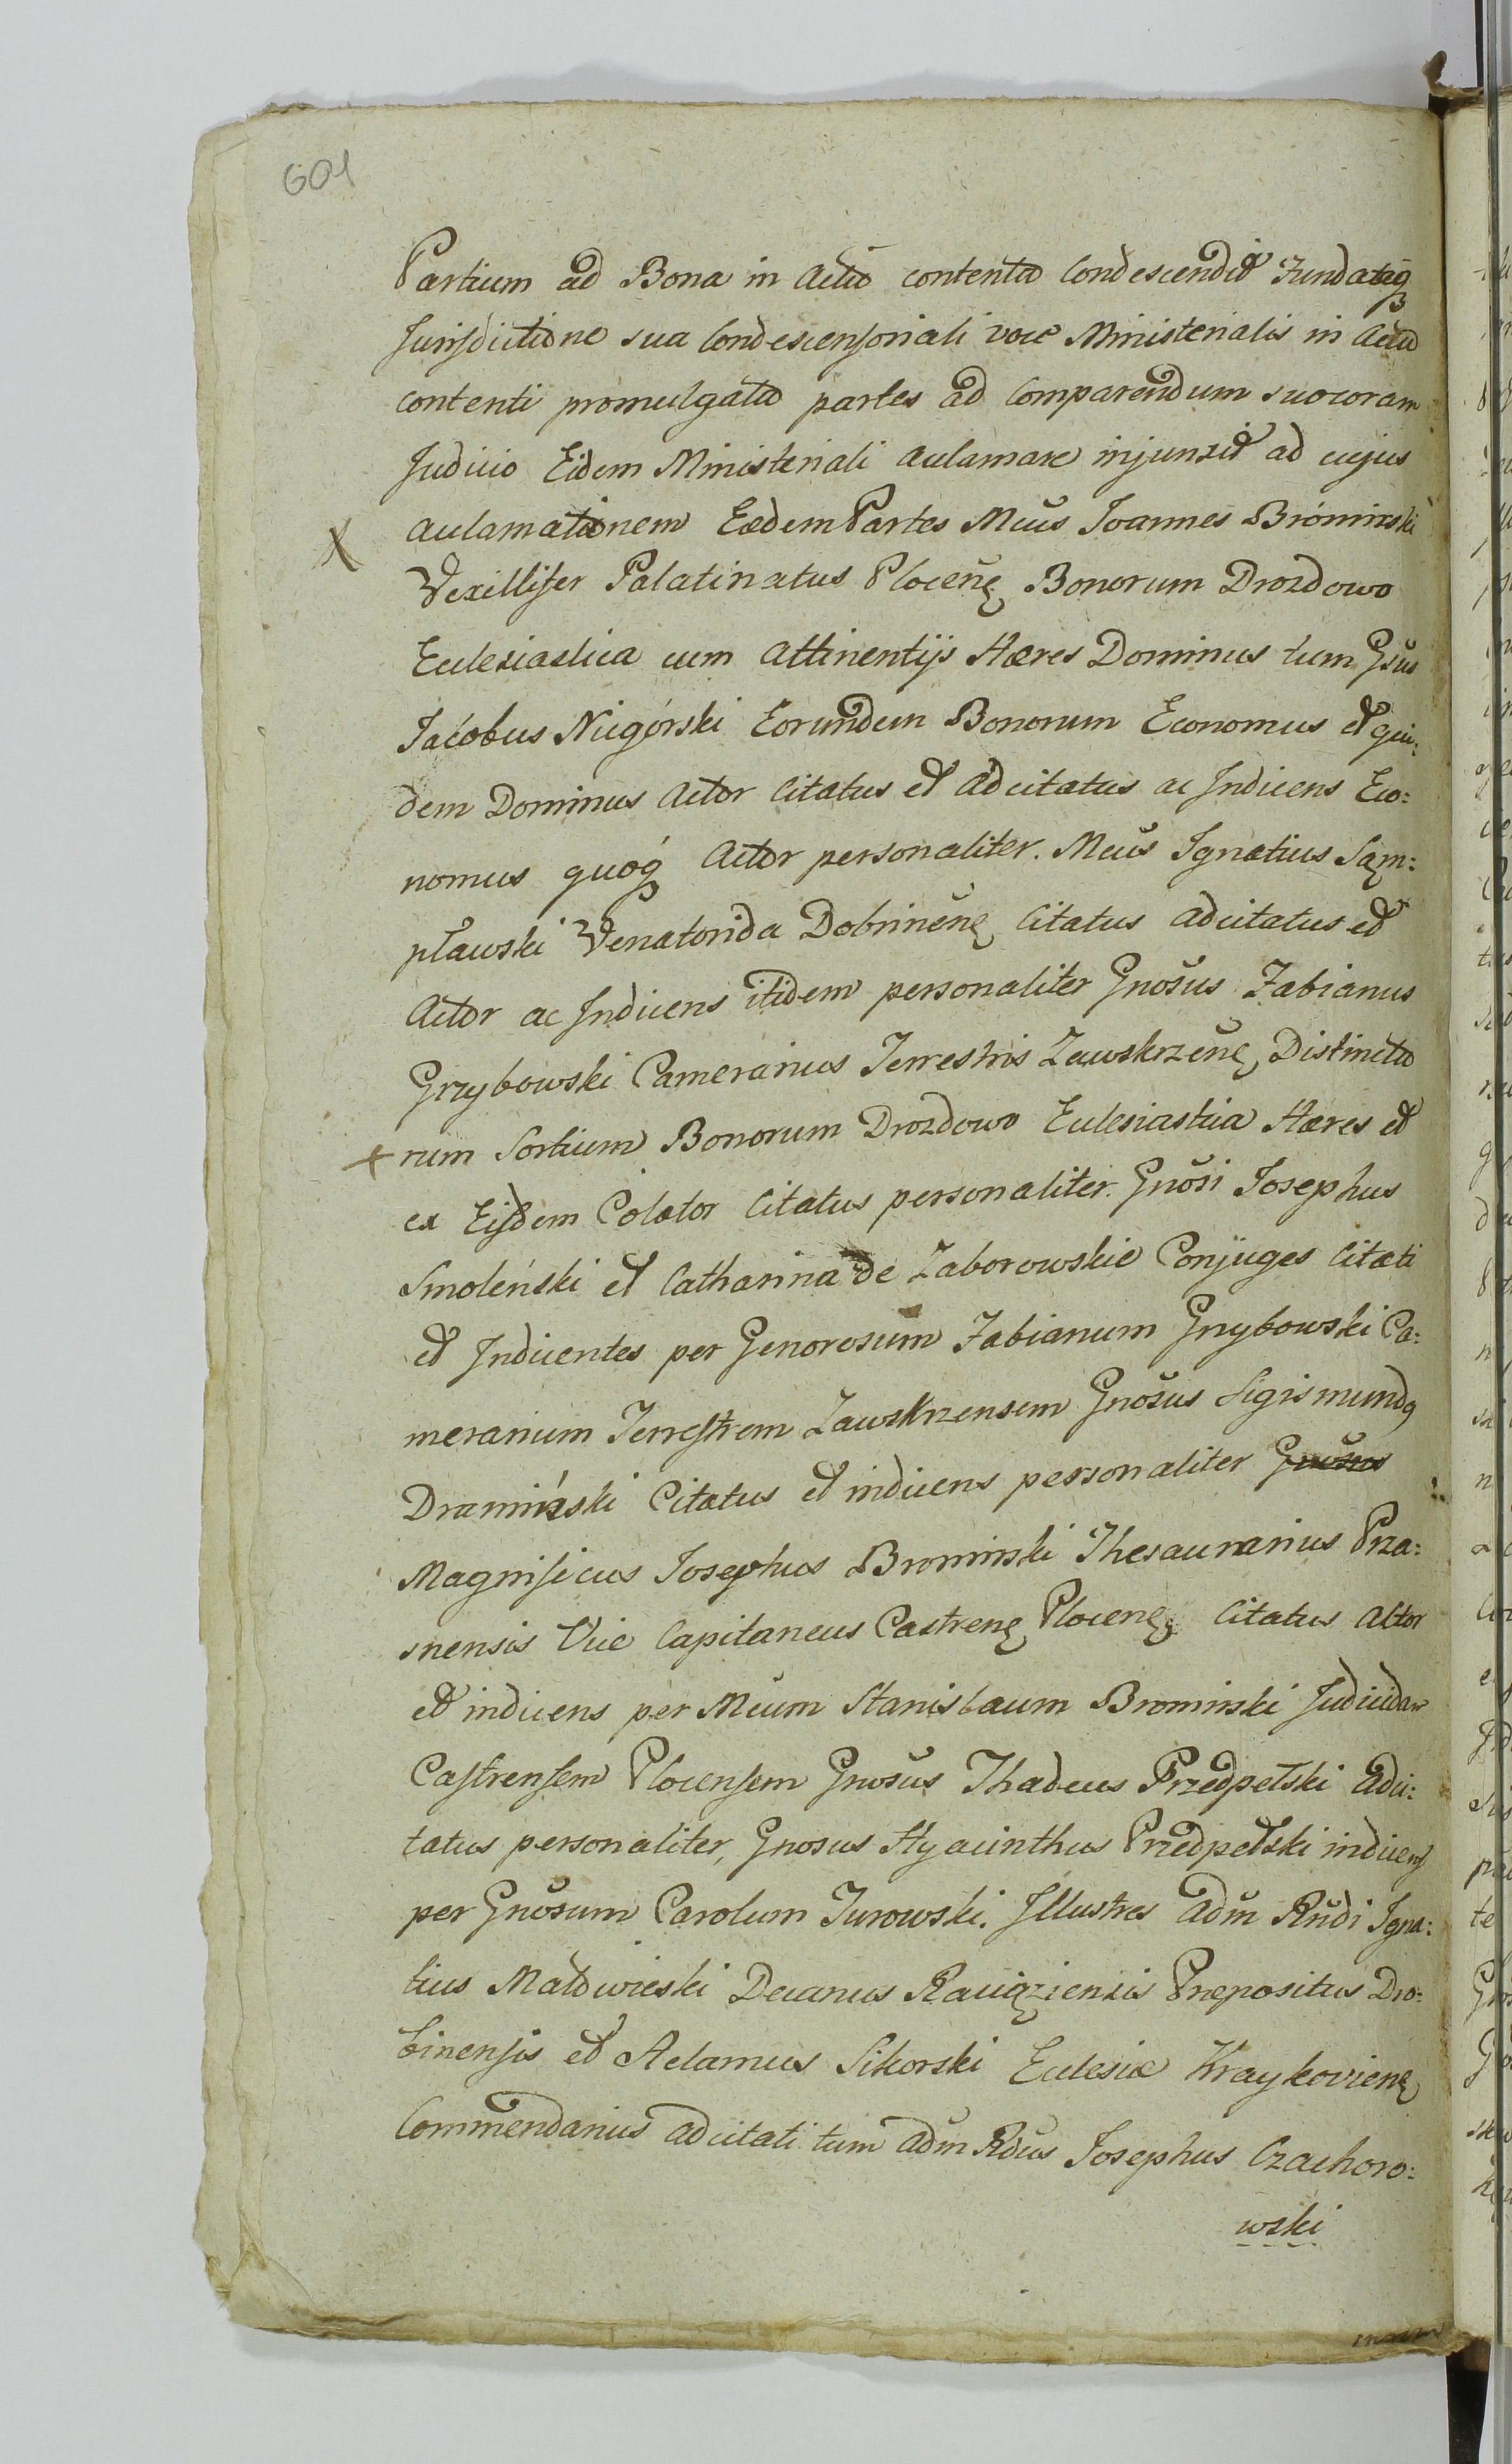 601
Partium ad Bona in Actu contenta Condescendit Fundataq̃
Jurisdictione sua Condescensoriali voce Ministerialis in Actu
contenti promulgata partes ad Comparendum suo coram
Judicio Eidem Ministeriali acclamare injunxit ad cujus
acclamationem Eædem Partes Mcus Joannes Brominski
Vexillifer Palatinatus Plocenę Bonorum Drozdowo
Ecclesiastica cum Attinentijs Hæres Dominus tum Gsus
Jacobus Niegórski Eorundem Bonorum Economus et qui:
dem Dominus Actor Citatus et Adcitatus ac Indicens Eco:
nomus quoq̃ Actor personaliter. Mcus Ignatius Sąm:
pławski Venatorida Dobrinenę Citatus adcitatus et
Actor ac Indicens itidem personaliter Gnosus Fabianus
Grzybowski Camerarius Terrestris Zawskrzenę Distincta
rum Sortium Bonorum Drozdowo Ecclesiastica Hæres et
ex Eisdem Colator Citatus personaliter. Gnosi Josephus
Smoleński et Catharina de Zaborowskie Conjuges Citati
et Indicentes per Generosum Fabianum Grzybowski Ca:
merarium Terrestrem Zawskrzensem Gnosus Sigismundq
Dramiński Citatus et indicens personaliter Gnosus
Magnificus Josephus Brominski Thesaurarius Prza:
snensis Vice Capitaneus Castrenę Plocenę Citatus Actor
et indicens per Mcum Stanislaum Brominski Judicidam
Castrensem Plocensem Gnosus Thadeus Przedpełski Adci:
tatus personaliter, Gnosus Hyacinthus Przedpełski indicens
per Gnosum Carolum Jurowski. Illustres Adm Rndi Igna:
tius Małowieski Decanus Raciąziensis Pręposistus Dro:
binensis et Adamus Sikorski Ecclesiæ Kraykovienę
Commendarius adcitati tum Adm Rdus Josephus Czachoro:
wski